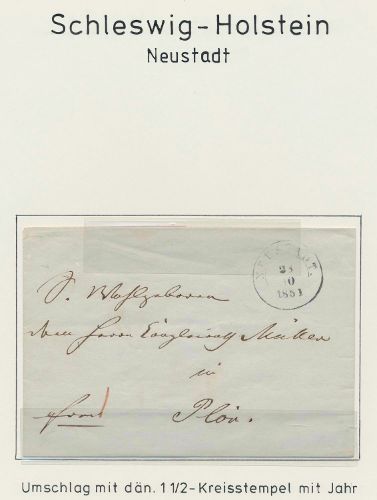 Schleswig-Holstein
Neustadt
NEUSTADT.
23
10
1851
S. Wohlgeboren
dem Herrn Canzleirath Müller
in
franco Plön.
Umschlag mit dän. 1 1/2-Kreisstempel mit Jahr